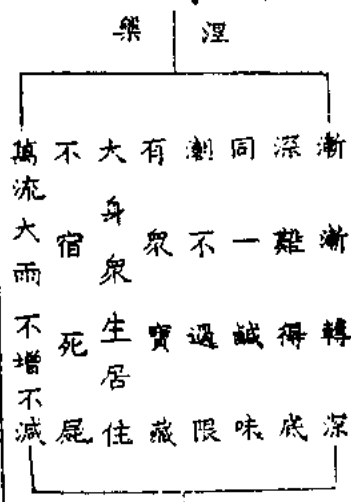 涅槃
漸漸轉深
深難得底
同一鹹味
潮不過限
有眾寶藏
大身眾生居住
不宿死屍
萬流大雨不增不減